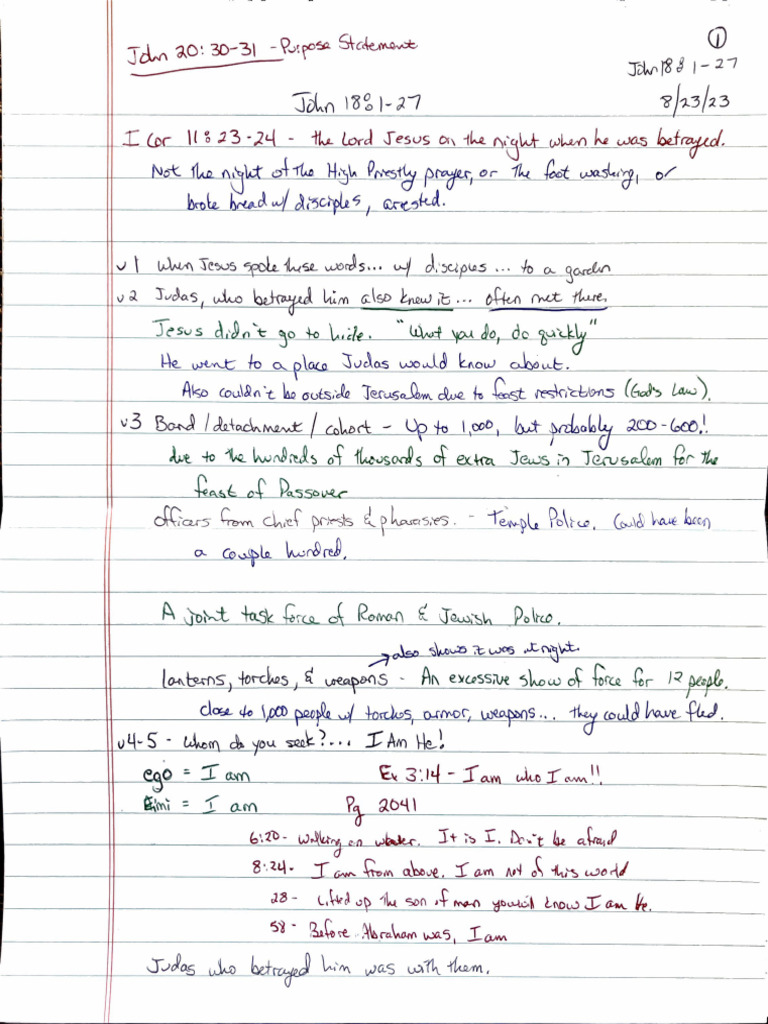 John 20:30-31 - Purpose Statement
①
John 18:1-27
John 18:1-27
8/23/23
I Cor 11:23-24 - the Lord Jesus on the night when he was betrayed.
Not the night of the High Priestly prayer, or the foot washing, or
broke bread w/ disciples, arrested.
v1 When Jesus spoke these words... w/ disciples ... to a garden
v2 Judas, who betrayed him also knew it ... often met there.
Jesus didn't go to hide. "What you do, do quickly"
He went to a place Judas would know about.
Also couldn't be outside Jerusalem due to feast restrictions (God's Law).
v3 Band/detachment/cohort - Up to 1,000, but probably 200-600!
due to the hundreds of thousands of extra Jews in Jerusalem for the
feast of Passover
officers from chief priests & pharasies. - Temple Police. Could have been
a couple hundred.
A joint task force of Roman & Jewish Police.
also shows it was at night.
lanterns, torches, & weapons - An excessive show of force for 12 people.
close to 1,000 people w/ torches, armor, weapons... they could have fled.
v4-5 - Whom do you seek?... I Am He!
ego = I am Ex 3:14 - I am who I am!!
Eimi = I am Pg 2041
6:20 - Walking on water. It is I. Don't be afraid
8:24 - I am from above. I am not of this world
28 - Lifted up the son of man you'll know I am he.
58 - Before Abraham was, I am
Judas who betrayed him was with them.